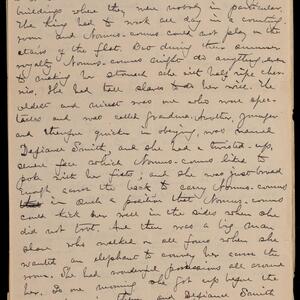 buildings where they were nobody in particular.
The King had to work all day in a counting
room and Nonus-conus could not play on the
stairs of the flat. But during their summer
royalty Nonus-conus might do anything even
to making her stomach ache with half ripe cher-
ries. She had two slaves to do her will. The
oldest and nicest was one who wore spec-
tacles and was called grandma. Another, younger
and therefore quicker in obeying, was named
Defiance Smith, and she had a twisted-up,
severe face which Nonus-conus liked to
poke with her fists; and she was just broad
enough across the back to carry Nonus-conus
in such a position that Nonus-conus
could kick her well in the sides when she
did not trot. And there was a big man
slave who walked on all fours when she
wanted an elephant to convey her across the
room. She had wonderful possessions all around
her. One morning she got up before the
and Defiance Smith